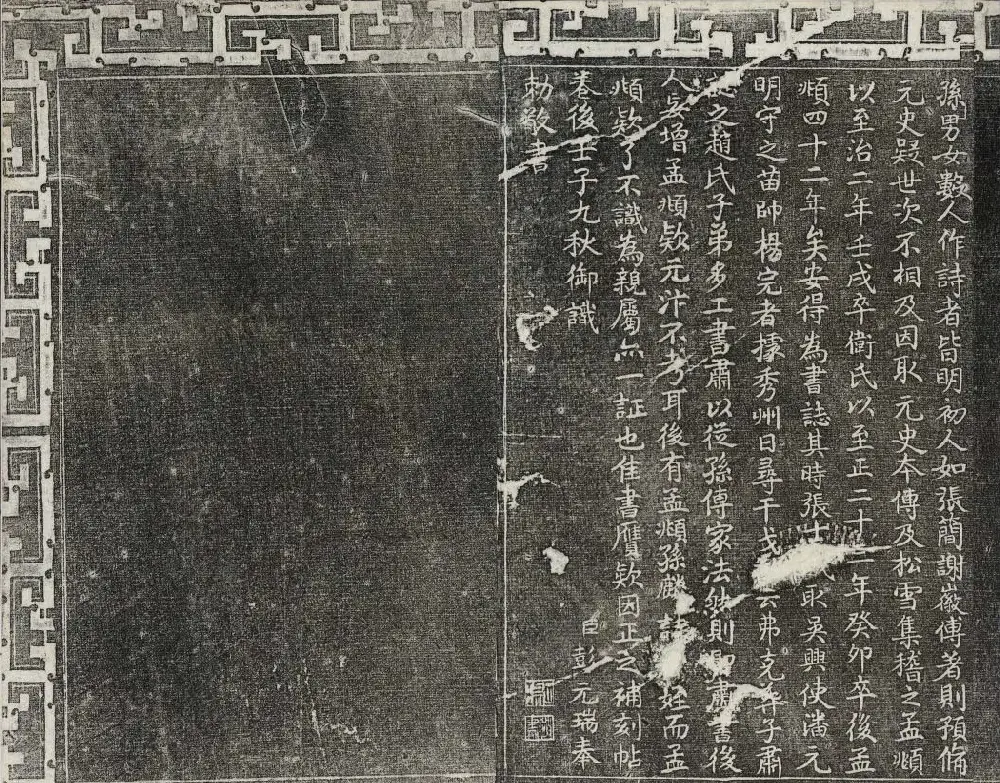 孫男女數人作詩者皆明初人如張簡謝徽傅著則預脩
元史疑世次不相及因取元史本傳及松雪集稽之孟頫
以至治二年壬戌卒衛氏以至正二十一年癸卯卒後孟
頫四十二年矣安得為書誌其時張士取吳興使潘元
明守之苗帥楊完者據秀州日尋干戈云弗克葬子肅
之趙氏子弟多工書肅以從孫傳家法然則肅書後
人妄增孟頫欵元汴不考耳後有孟頫孫麟姪而孟
頫欵了不識為親屬亦一証也佳書贋欵因正之補刻帖
卷後壬子九秋御識
臣彭元瑞奉
勅敬書